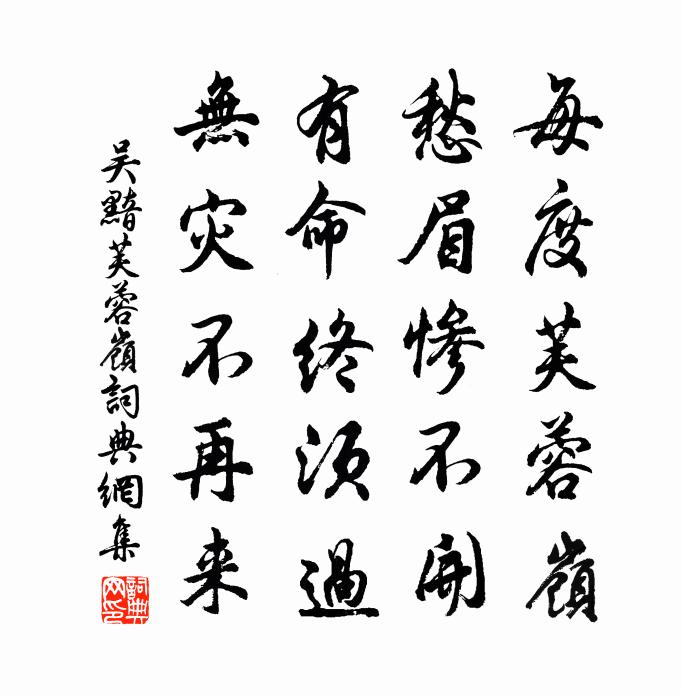 每度芙蓉嶺
愁眉慘不開
有命終須過
無灾不再来
吴黯芙蓉嶺詞典網集
詞典网印